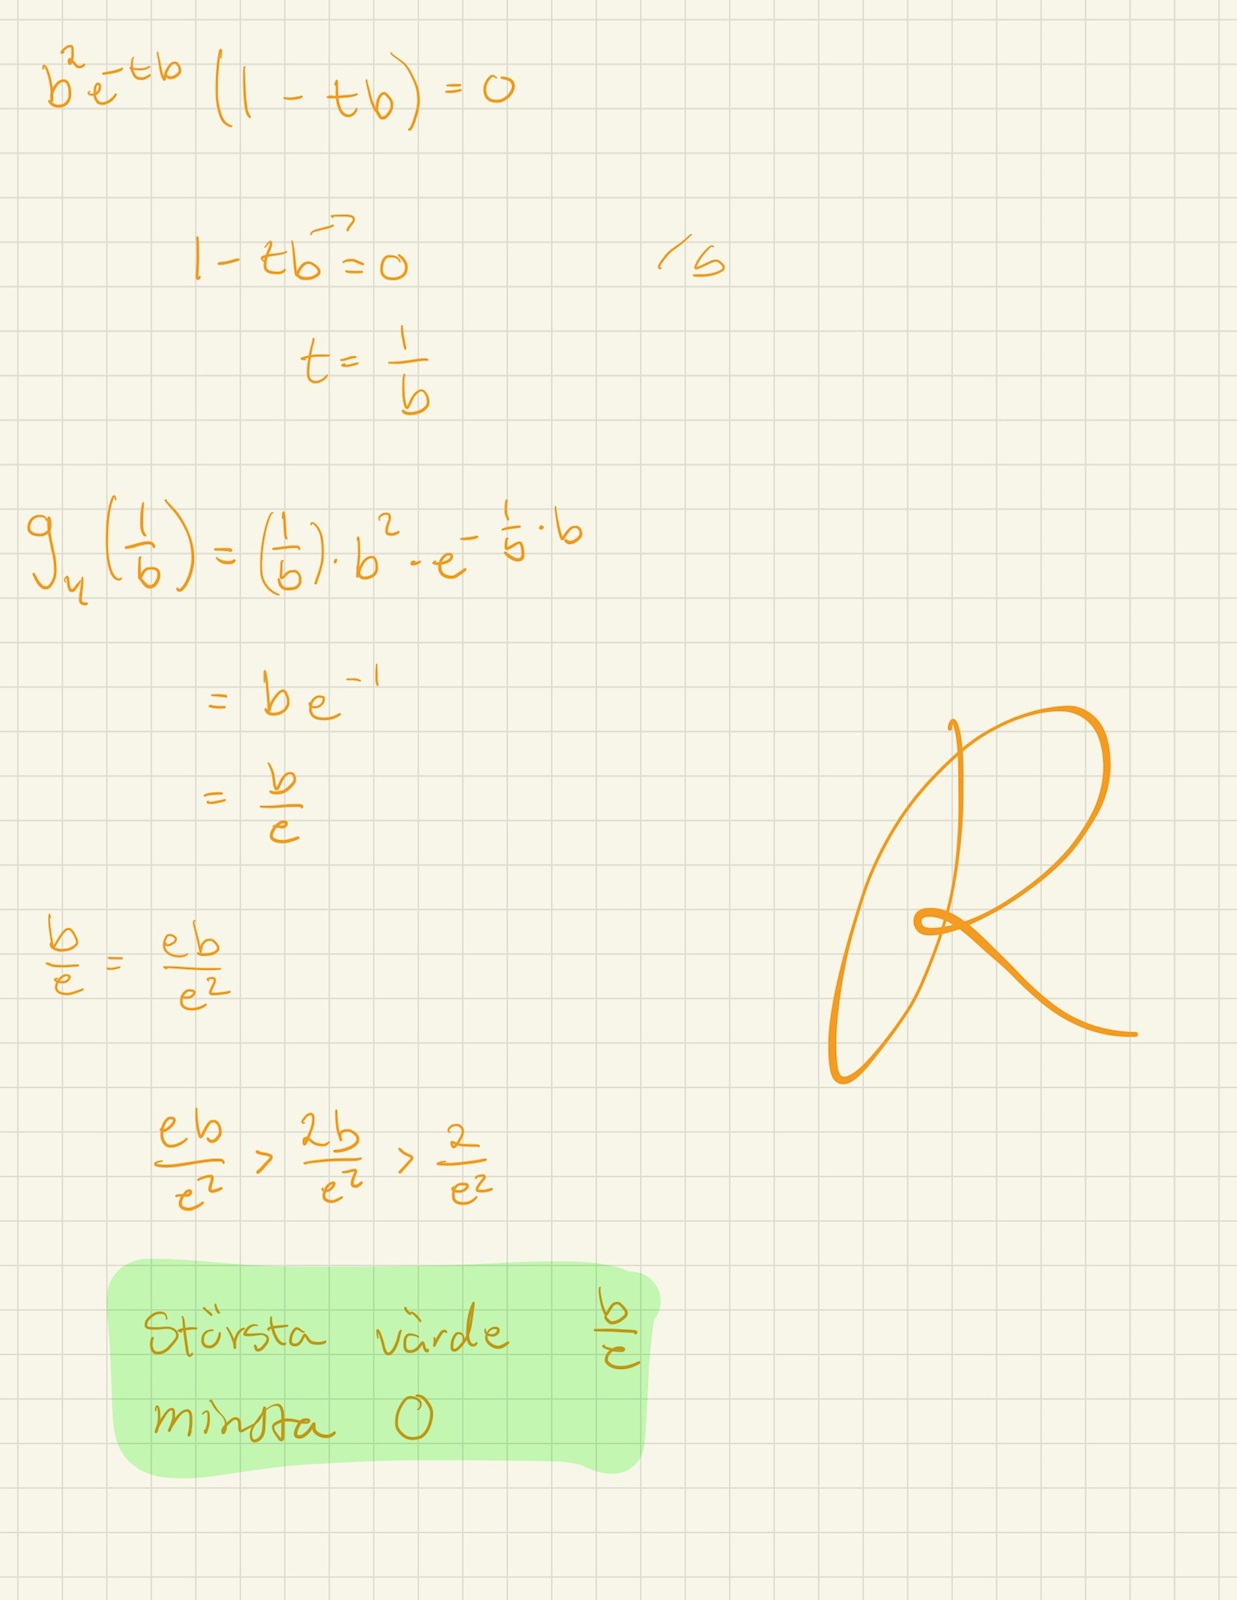 b²e^{-tb} (1 - tb) = 0
1 - tb = 0 /b
t = 1/b
g₄(1/b) = (1/b) · b² · e^{-1/b · b}
= be^{-1}
= b/e
b/e = eb/e²
eb/e² > 2b/e² > 2/e²
Största värde b/e
minsta 0
R